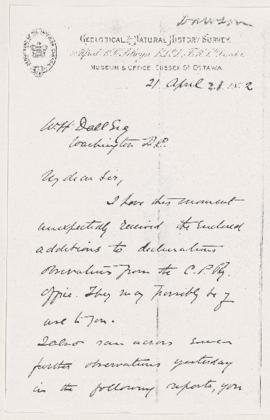 Dawson
GEOLOGICAL & NATURAL HISTORY SURVEY.
MUSEUM & OFFICE, SUSSEX ST. OTTAWA.
21 April 188
W H Dall Esq
Washington D.C.
My dear Sir,
I have this moment
unexpectedly received the enclosed
additions to declination
observations from the C. P. Ry.
office. They may possibly be of
use to you.
I also ran across some
further observations yesterday
in the following reports, you